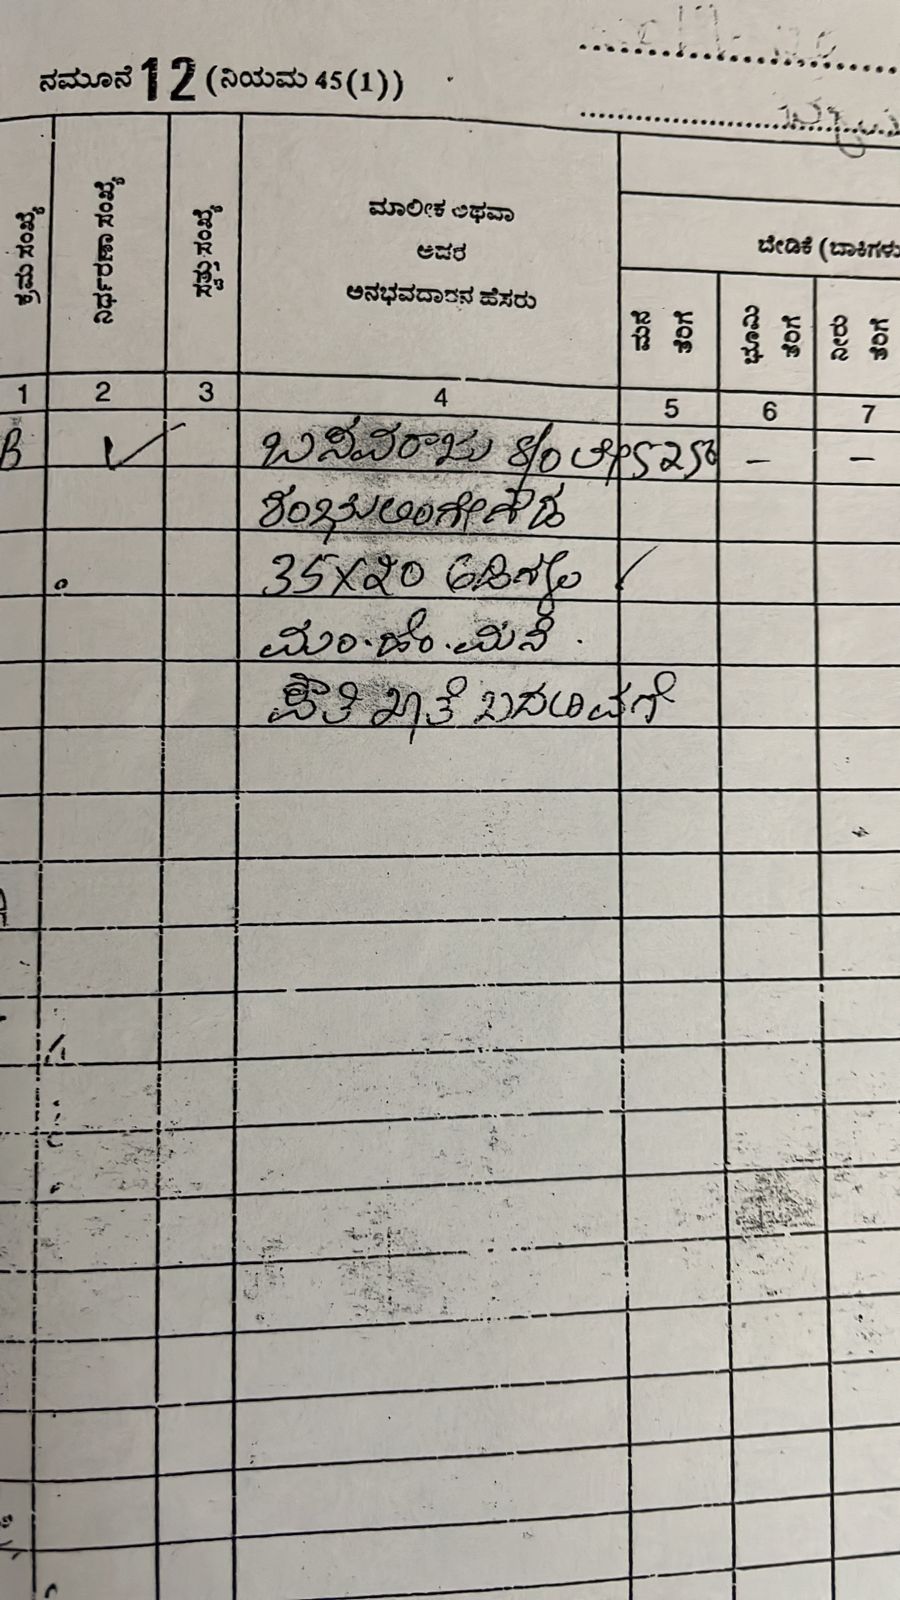 ನಮೂನೆ 12 (ನಿಯಮ 45(1))
ಕ್ರಮ ಸಂಖ್ಯೆ
ನಿರ್ಧರಣಾ ಸಂಖ್ಯೆ
ಸ್ವತ್ತು ಸಂಖ್ಯೆ
ಮಾಲೀಕ ಅಥವಾ
ಅದರ
ಅನುಭವದಾರನ ಹೆಸರು
ಬೇಡಿಕೆ (ಬಾಕಿಗಳು
ಮನೆ ತೆರಿಗೆ
ಭೂಮಿ ತೆರಿಗೆ
ನೀರು ತೆರಿಗೆ
1 2 3 4 5 6 7
ಬಸವರಾಜು – –
ಶಂಭುಲಿಂಗೇಗೌಡ
35X20 ಅಡಿಗಳು
ಮಂ.ಹೆಂ.ಮನೆ.
ಪೌತಿ ಖಾತೆ ಬದಲಾವಣೆ